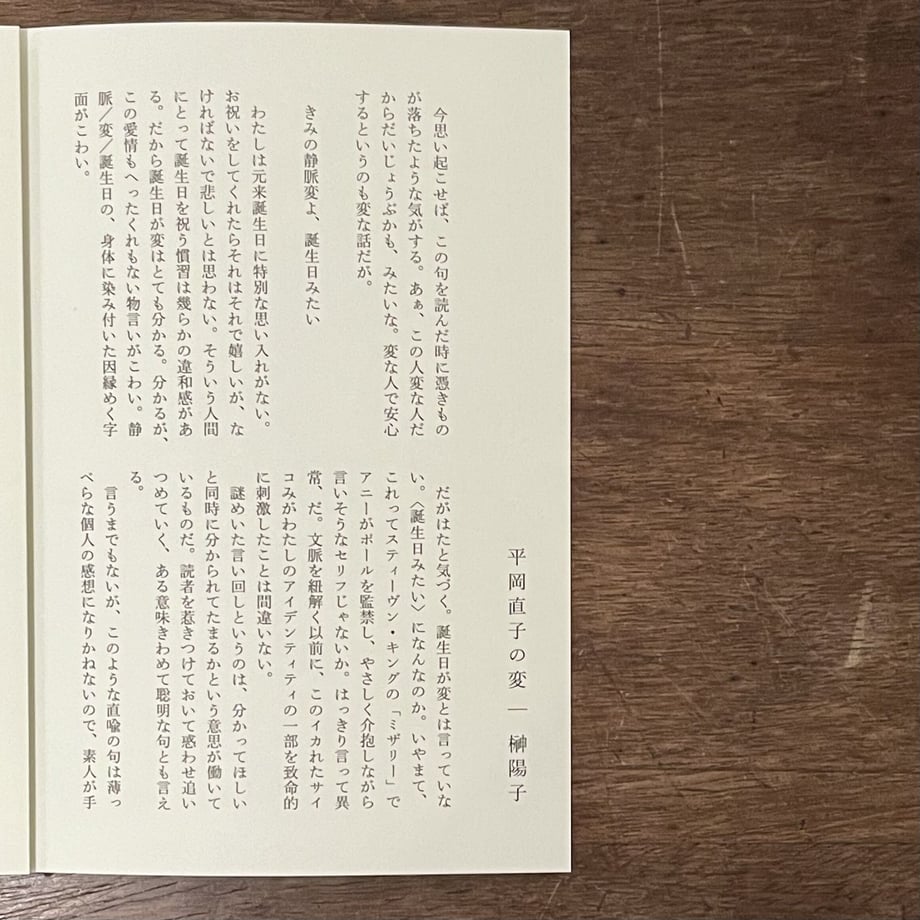 平岡直子の変 ― 榊陽子
今思い起こせば、この句を読んだ時に憑きもの
が落ちたような気がする。あぁ、この人変な人だ
からだいじょうぶかも、みたいな。変な人で安心
するというのも変な話だが。
きみの静脈変よ、誕生日みたい
わたしは元来誕生日に特別な思い入れがない。
お祝いをしてくれたらそれはそれで嬉しいが、な
ければないで悲しいとは思わない。そういう人間
にとって誕生日を祝う慣習は幾らかの違和感があ
る。だから誕生日が変はとても分かる。分かるが、
この愛情もへったくれもない物言いがこわい。静
脈／変／誕生日の、身体に染み付いた因縁めく字
面がこわい。
だがはたと気づく。誕生日が変とは言っていな
い。〈誕生日みたい〉になんなのか。いやまて、
これってスティーヴン・キングの「ミザリー」で
アニーがポールを監禁し、やさしく介抱しながら
言いそうなセリフじゃないか。はっきり言って異
常、だ。文脈を紐解く以前に、このイカれたサイ
コみがわたしのアイデンティティの一部を致命的
に刺激したことは間違いない。
謎めいた言い回しというのは、分かってほしい
と同時に分かられてたまるかという意思が働いて
いるものだ。読者を惹きつけておいて惑わせ追い
つめていく、ある意味きわめて聡明な句とも言え
る。
言うまでもないが、このような直喩の句は薄っ
ぺらな個人の感想になりかねないので、素人が手